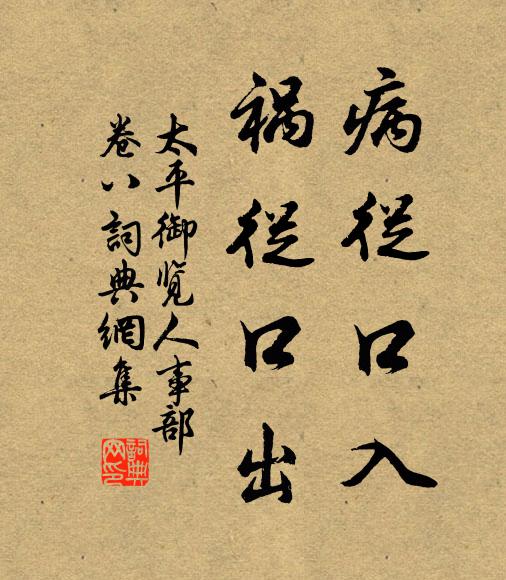 病從口入
禍從口出
太平御覧人事部
卷八詞典網集
詞典網印